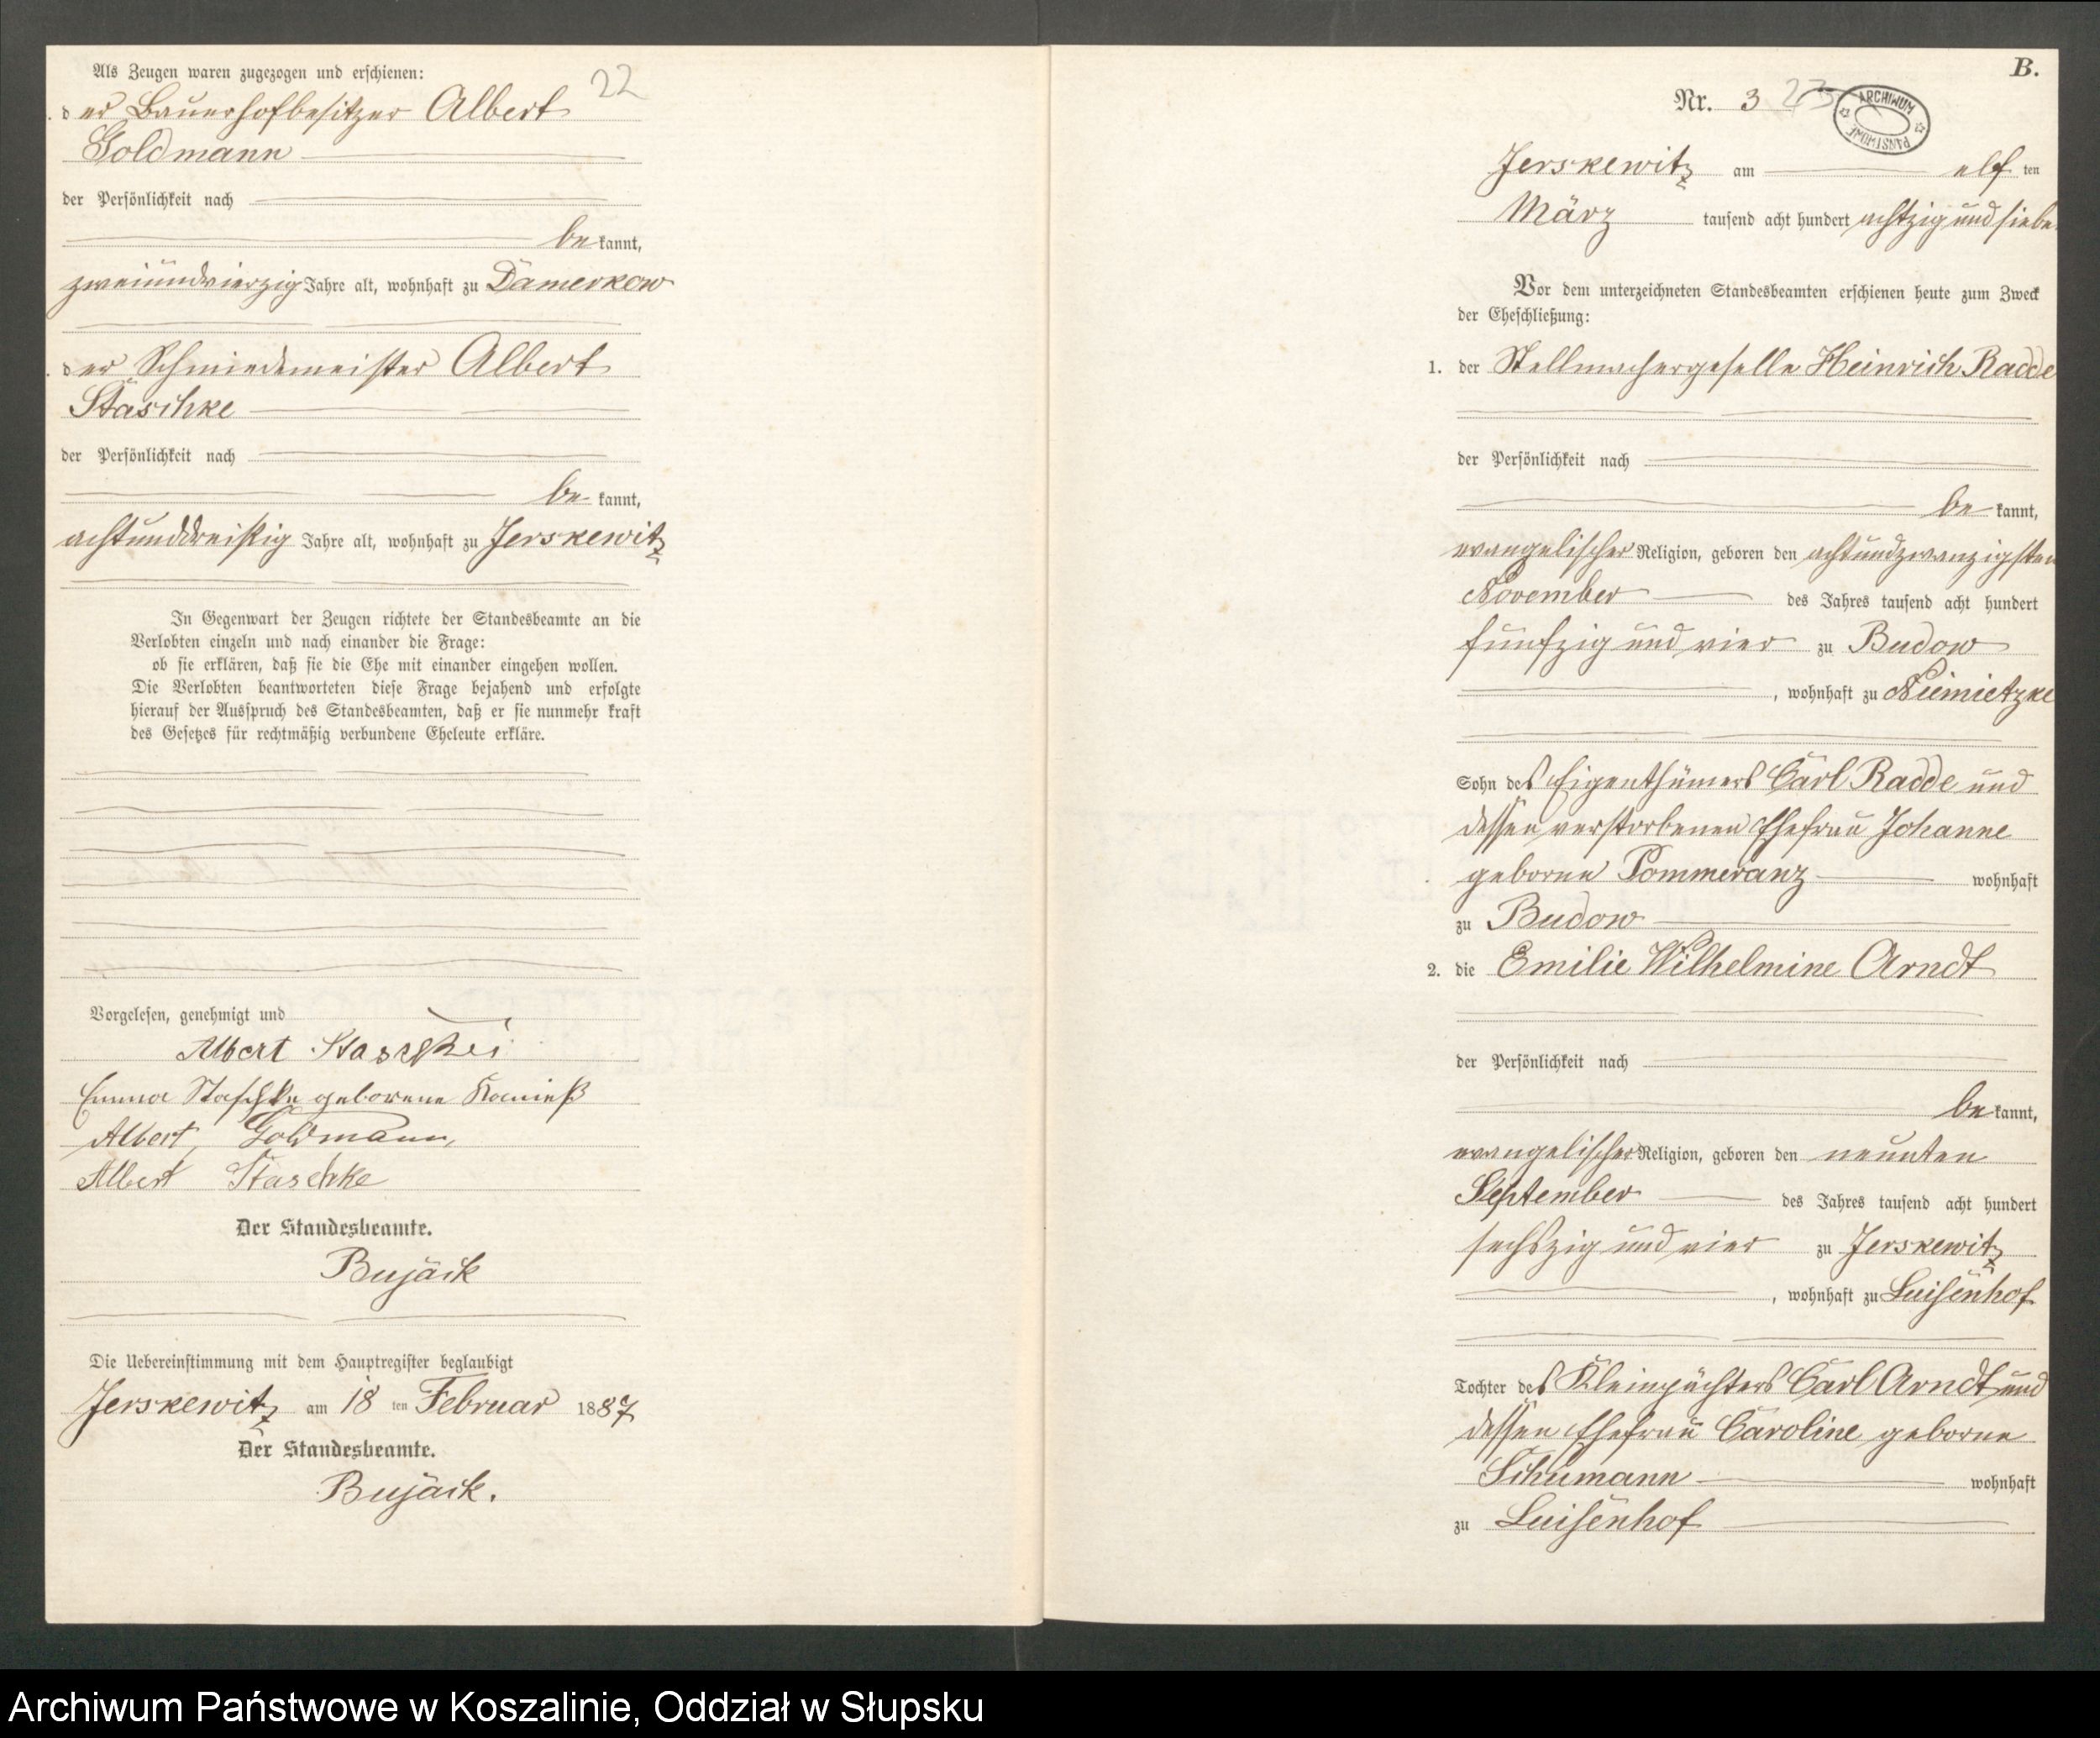 22
Als Zeugen waren zugezogen und erschienen:
der Bauerhofbesitzer Albert
Goldmann
der Persönlichkeit nach
be kannt,
zweiundvierzig Jahre alt, wohnhaft zu Damerkow
der Schmiedemeister Albert
Staschke
der Persönlichkeit nach
be kannt,
achtunddreißig Jahre alt, wohnhaft zu Jerskewitz
In Gegenwart der Zeugen richtete der Standesbeamte an die
Verlobten einzeln und nach einander die Frage:
ob sie erklären, daß sie die Ehe mit einander eingehen wollen.
Die Verlobten beantworteten diese Frage bejahend und erfolgte
hierauf der Ausspruch des Standesbeamten, daß er sie nunmehr kraft
des Gesetzes für rechtmäßig verbundene Eheleute erkläre.
Vorgelesen, genehmigt und
Albert
Emma Staschke geborene
Albert Goldmann,
Albert Staschke
Der Standesbeamte.
Bujäck
Die Uebereinstimmung mit dem Hauptregister beglaubigt
Jerskewitz am 18 ten Februar 1887
Der Standesbeamte.
Bujäck.
B.
Nr. 3 23
ARCHIWUM PAŃSTWOWE
Jerskewitz am elf ten
März tausend acht hundert achtzig und siebe
Vor dem unterzeichneten Standesbeamten erschienen heute zum Zweck
der Eheschließung:
1. der Stellmachergeselle Heinrich Radde
der Persönlichkeit nach
be kannt,
evangelischer Religion, geboren den achtundzwanzigsten
November des Jahres tausend acht hundert
funfzig und vier zu Budow
, wohnhaft zu Niemietzke
Sohn des Eigenthümers Carl Radde und
dessen verstorbenen Ehefrau Johanne
geborne Pommeranz wohnhaft
zu Budow
2. die Emilie Wilhelmine Arndt
der Persönlichkeit nach
be kannt,
evangelischer Religion, geboren den neunten
September des Jahres tausend acht hundert
sechszig und vier zu Jerskewitz
, wohnhaft zu Luisenhof
Tochter des Kleinpächters Carl Arndt und
dessen Ehefrau Caroline geborne
Schumann wohnhaft
zu Luisenhof
Archiwum Państwowe w Koszalinie, Oddział w Słupsku